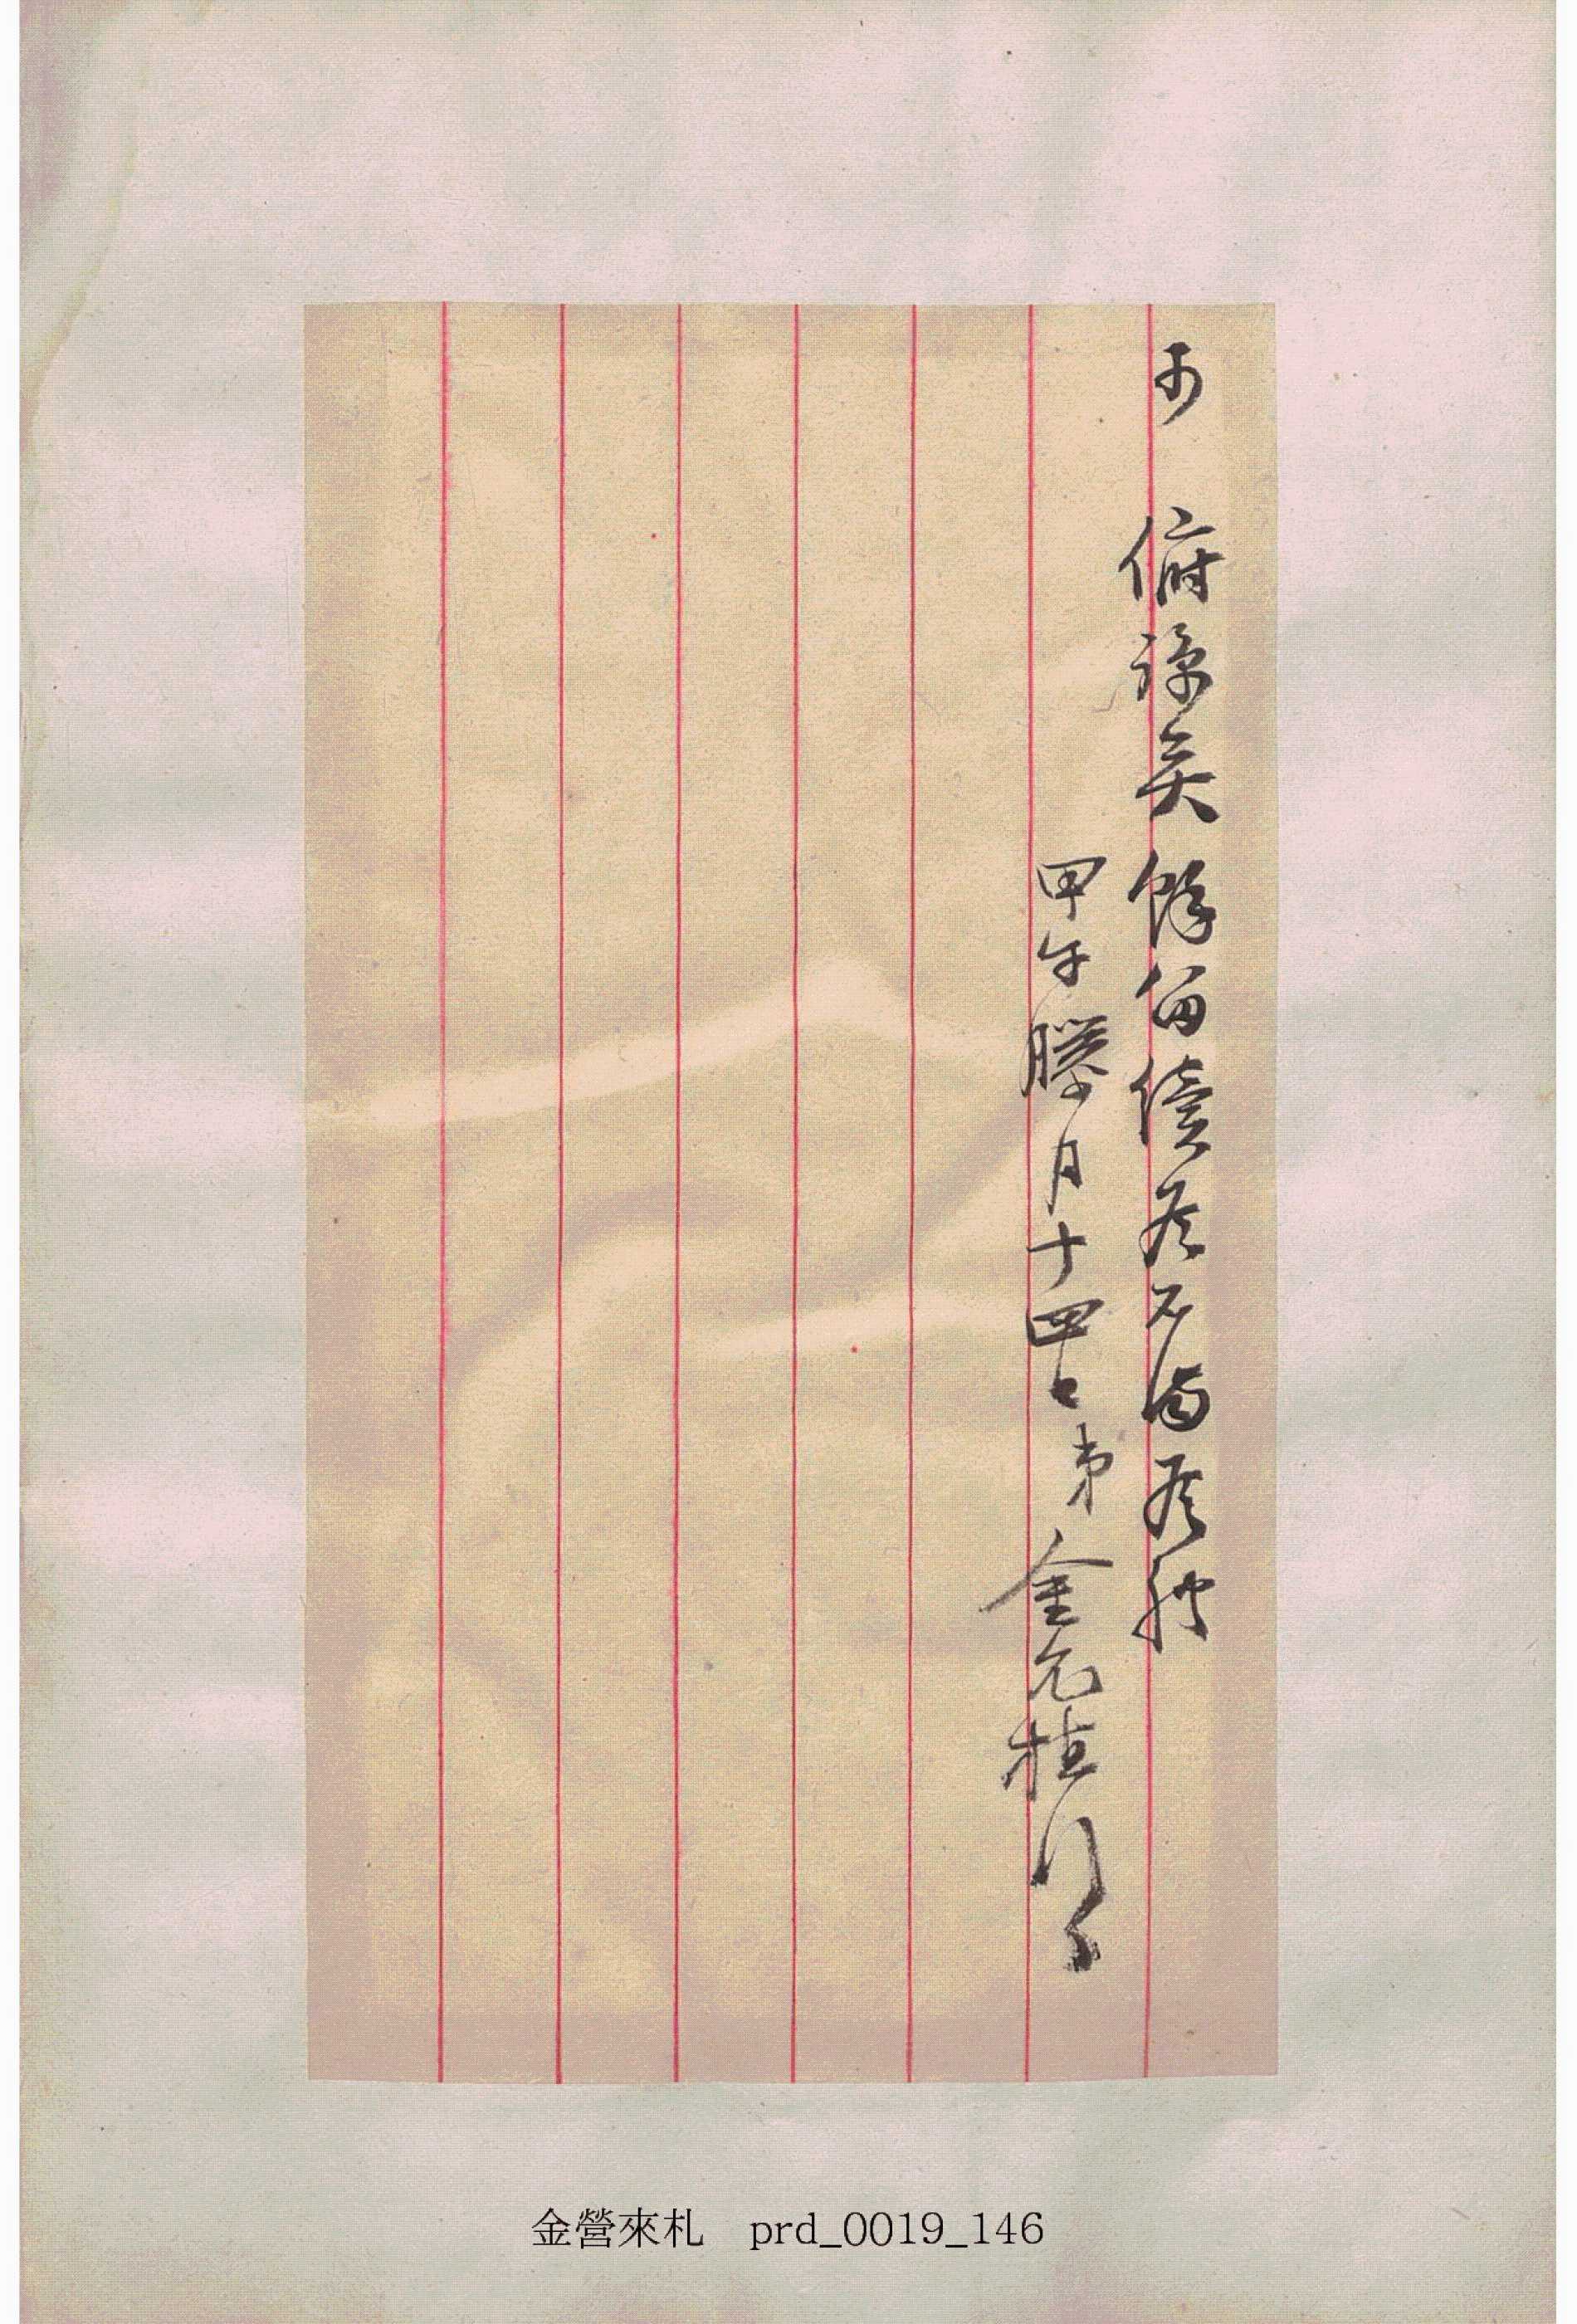 可 俯諒矣 餘留續候不備候
甲午臘月十四日 弟 金允植
金營來札 prd_0019_146